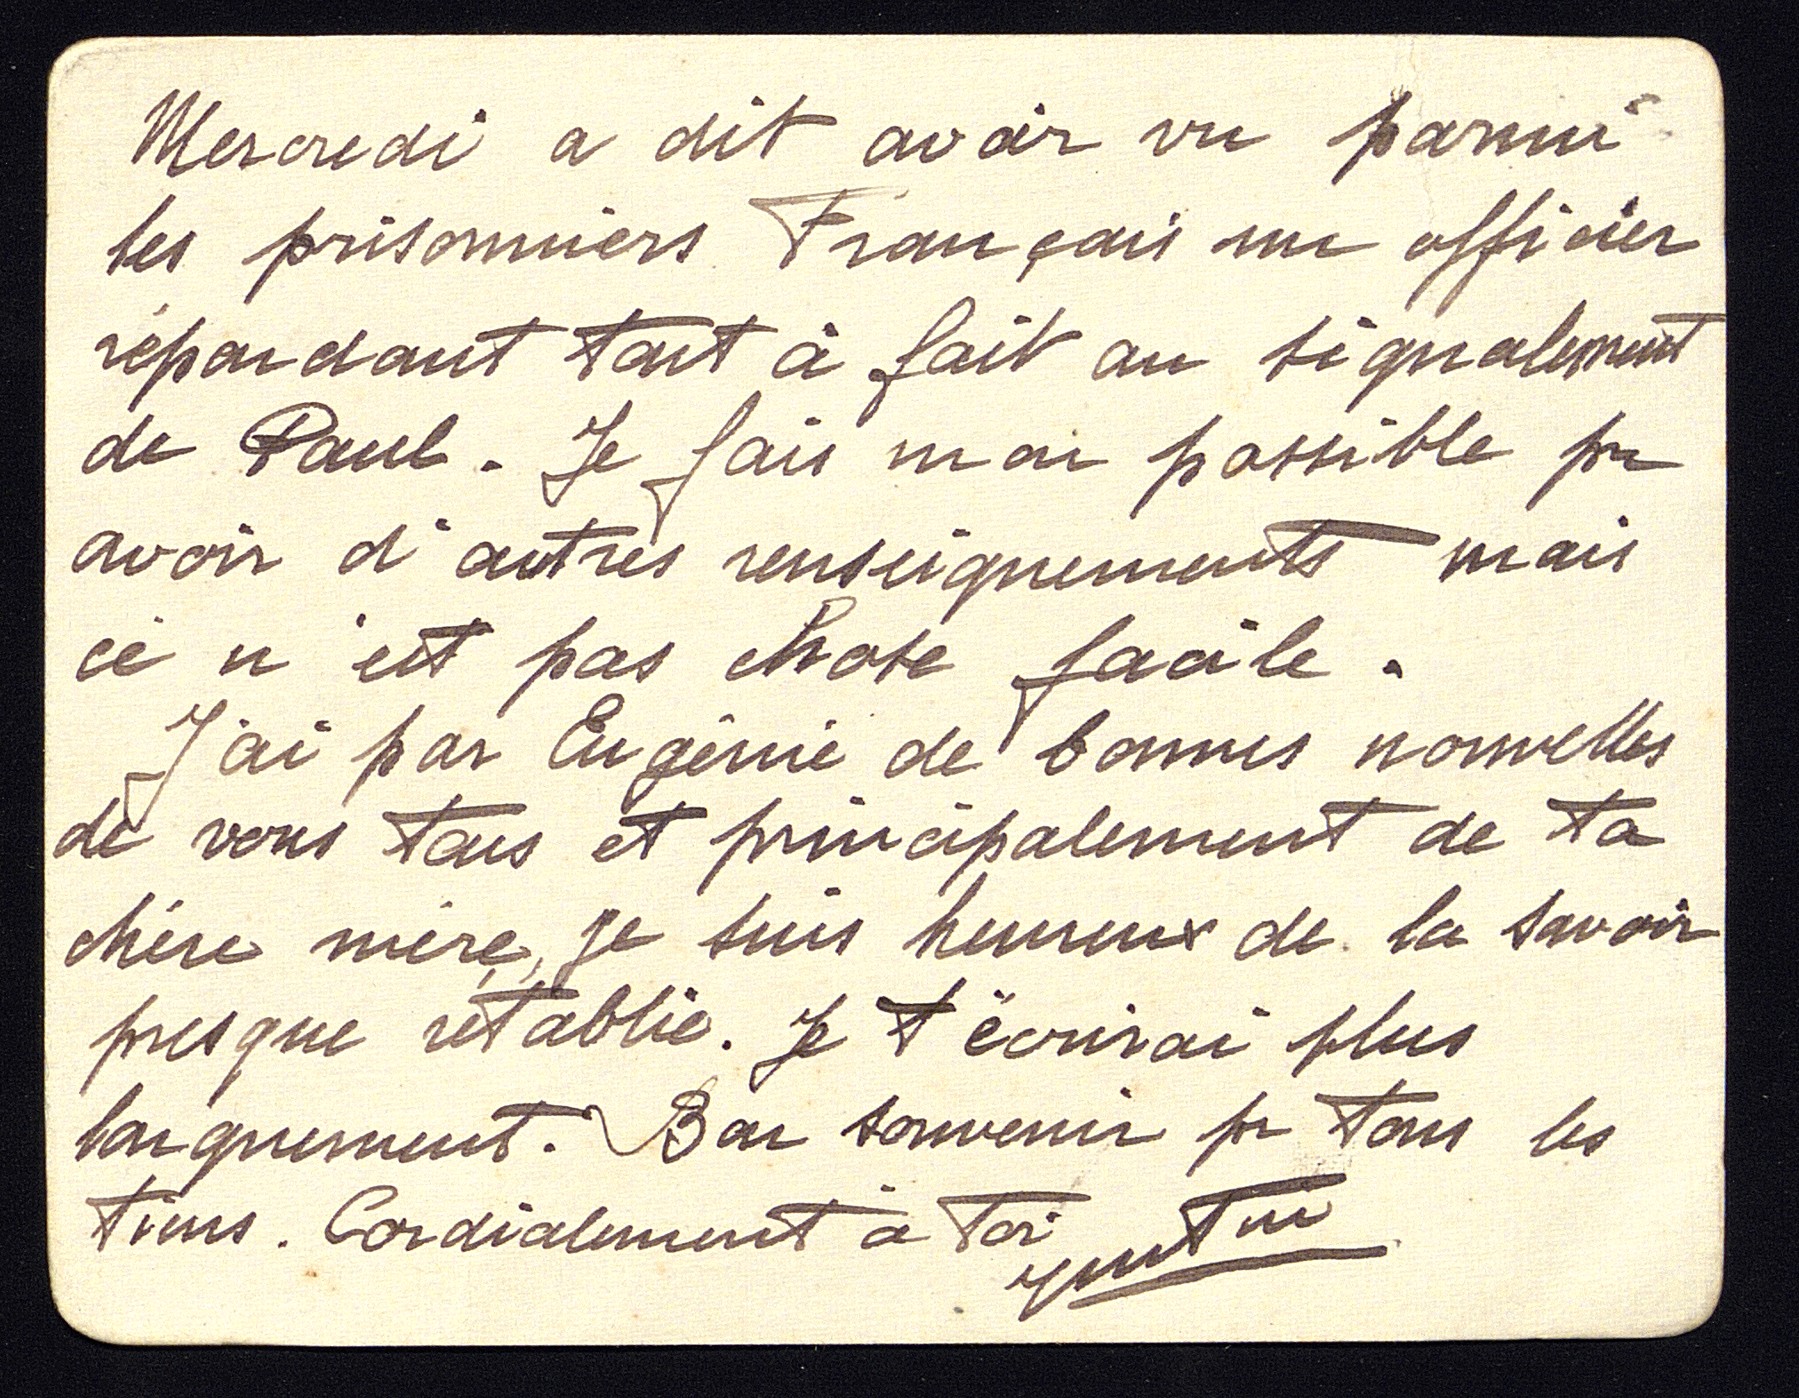 Mercredi a dit avoir vu parmi
les prisonniers Français un officier
répondant tout à fait au signalement
de Paul. Je fais mon possible pr
avoir d'autres renseignements mais
ce n'est pas chose facile.
J'ai par Eugénie de bonnes nouvelles
de vous tous et principalement de ta
chère mère, je suis heureux de la savoir
presque rétablie. Je t'écrirai plus
longuement. Bon souvenir pr tous les
tiens. Cordialement à toi